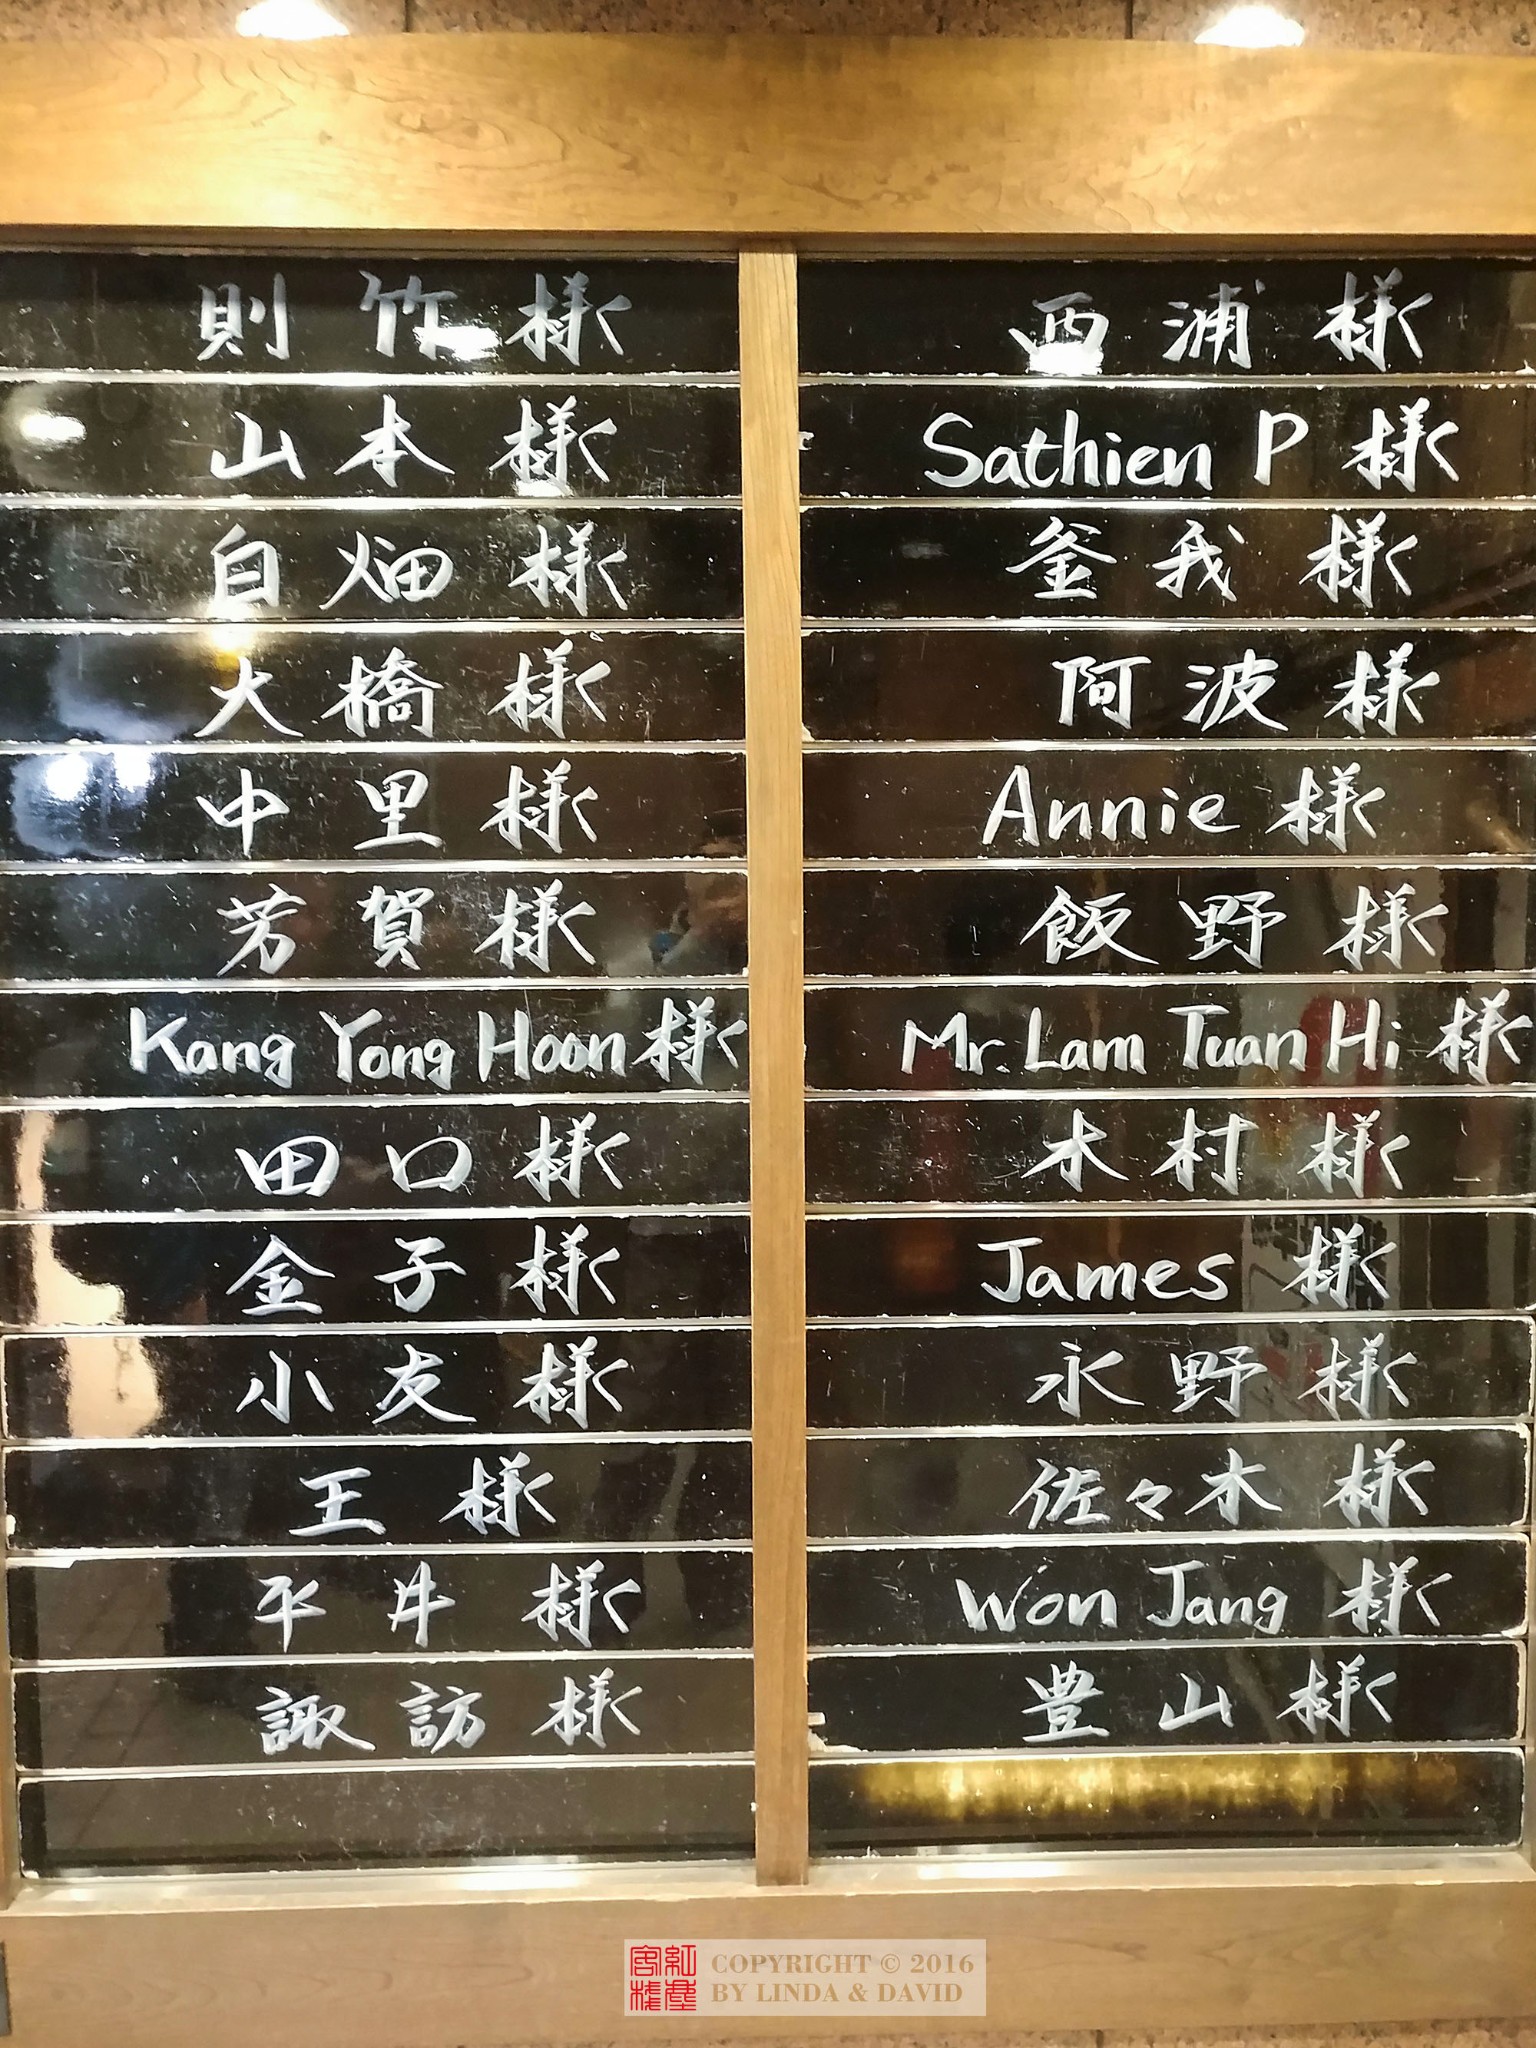 則竹様
山本様
白畑様
大橋様
中里様
芳賀様
Kang Yong Hoon様
田口様
金子様
小友様
王様
平井様
諏訪様
西浦様
Sathien P 様
釜我様
阿波様
Annie 様
飯野様
Mr. Lam Tuan Hi 様
木村様
James 様
永野様
佐々木様
Won Jang 様
豊山様
紅塵客棧
COPYRIGHT © 2016
BY LINDA & DAVID